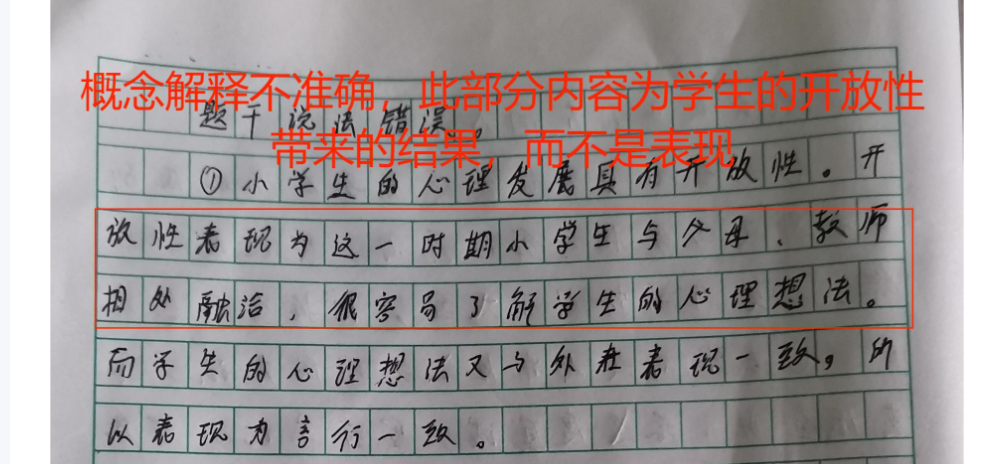 概念解释不准确，此部分内容为学生的开放性
带来的结果，而不是表现
题干说法错误。
①小学生的心理发展具有开放性。开
放性表现为这一时期小学生与父母、教师
相处融洽，很容易了解学生的心理想法。
而学生的心理想法又与外在表现一致，所
以表现为言行一致。